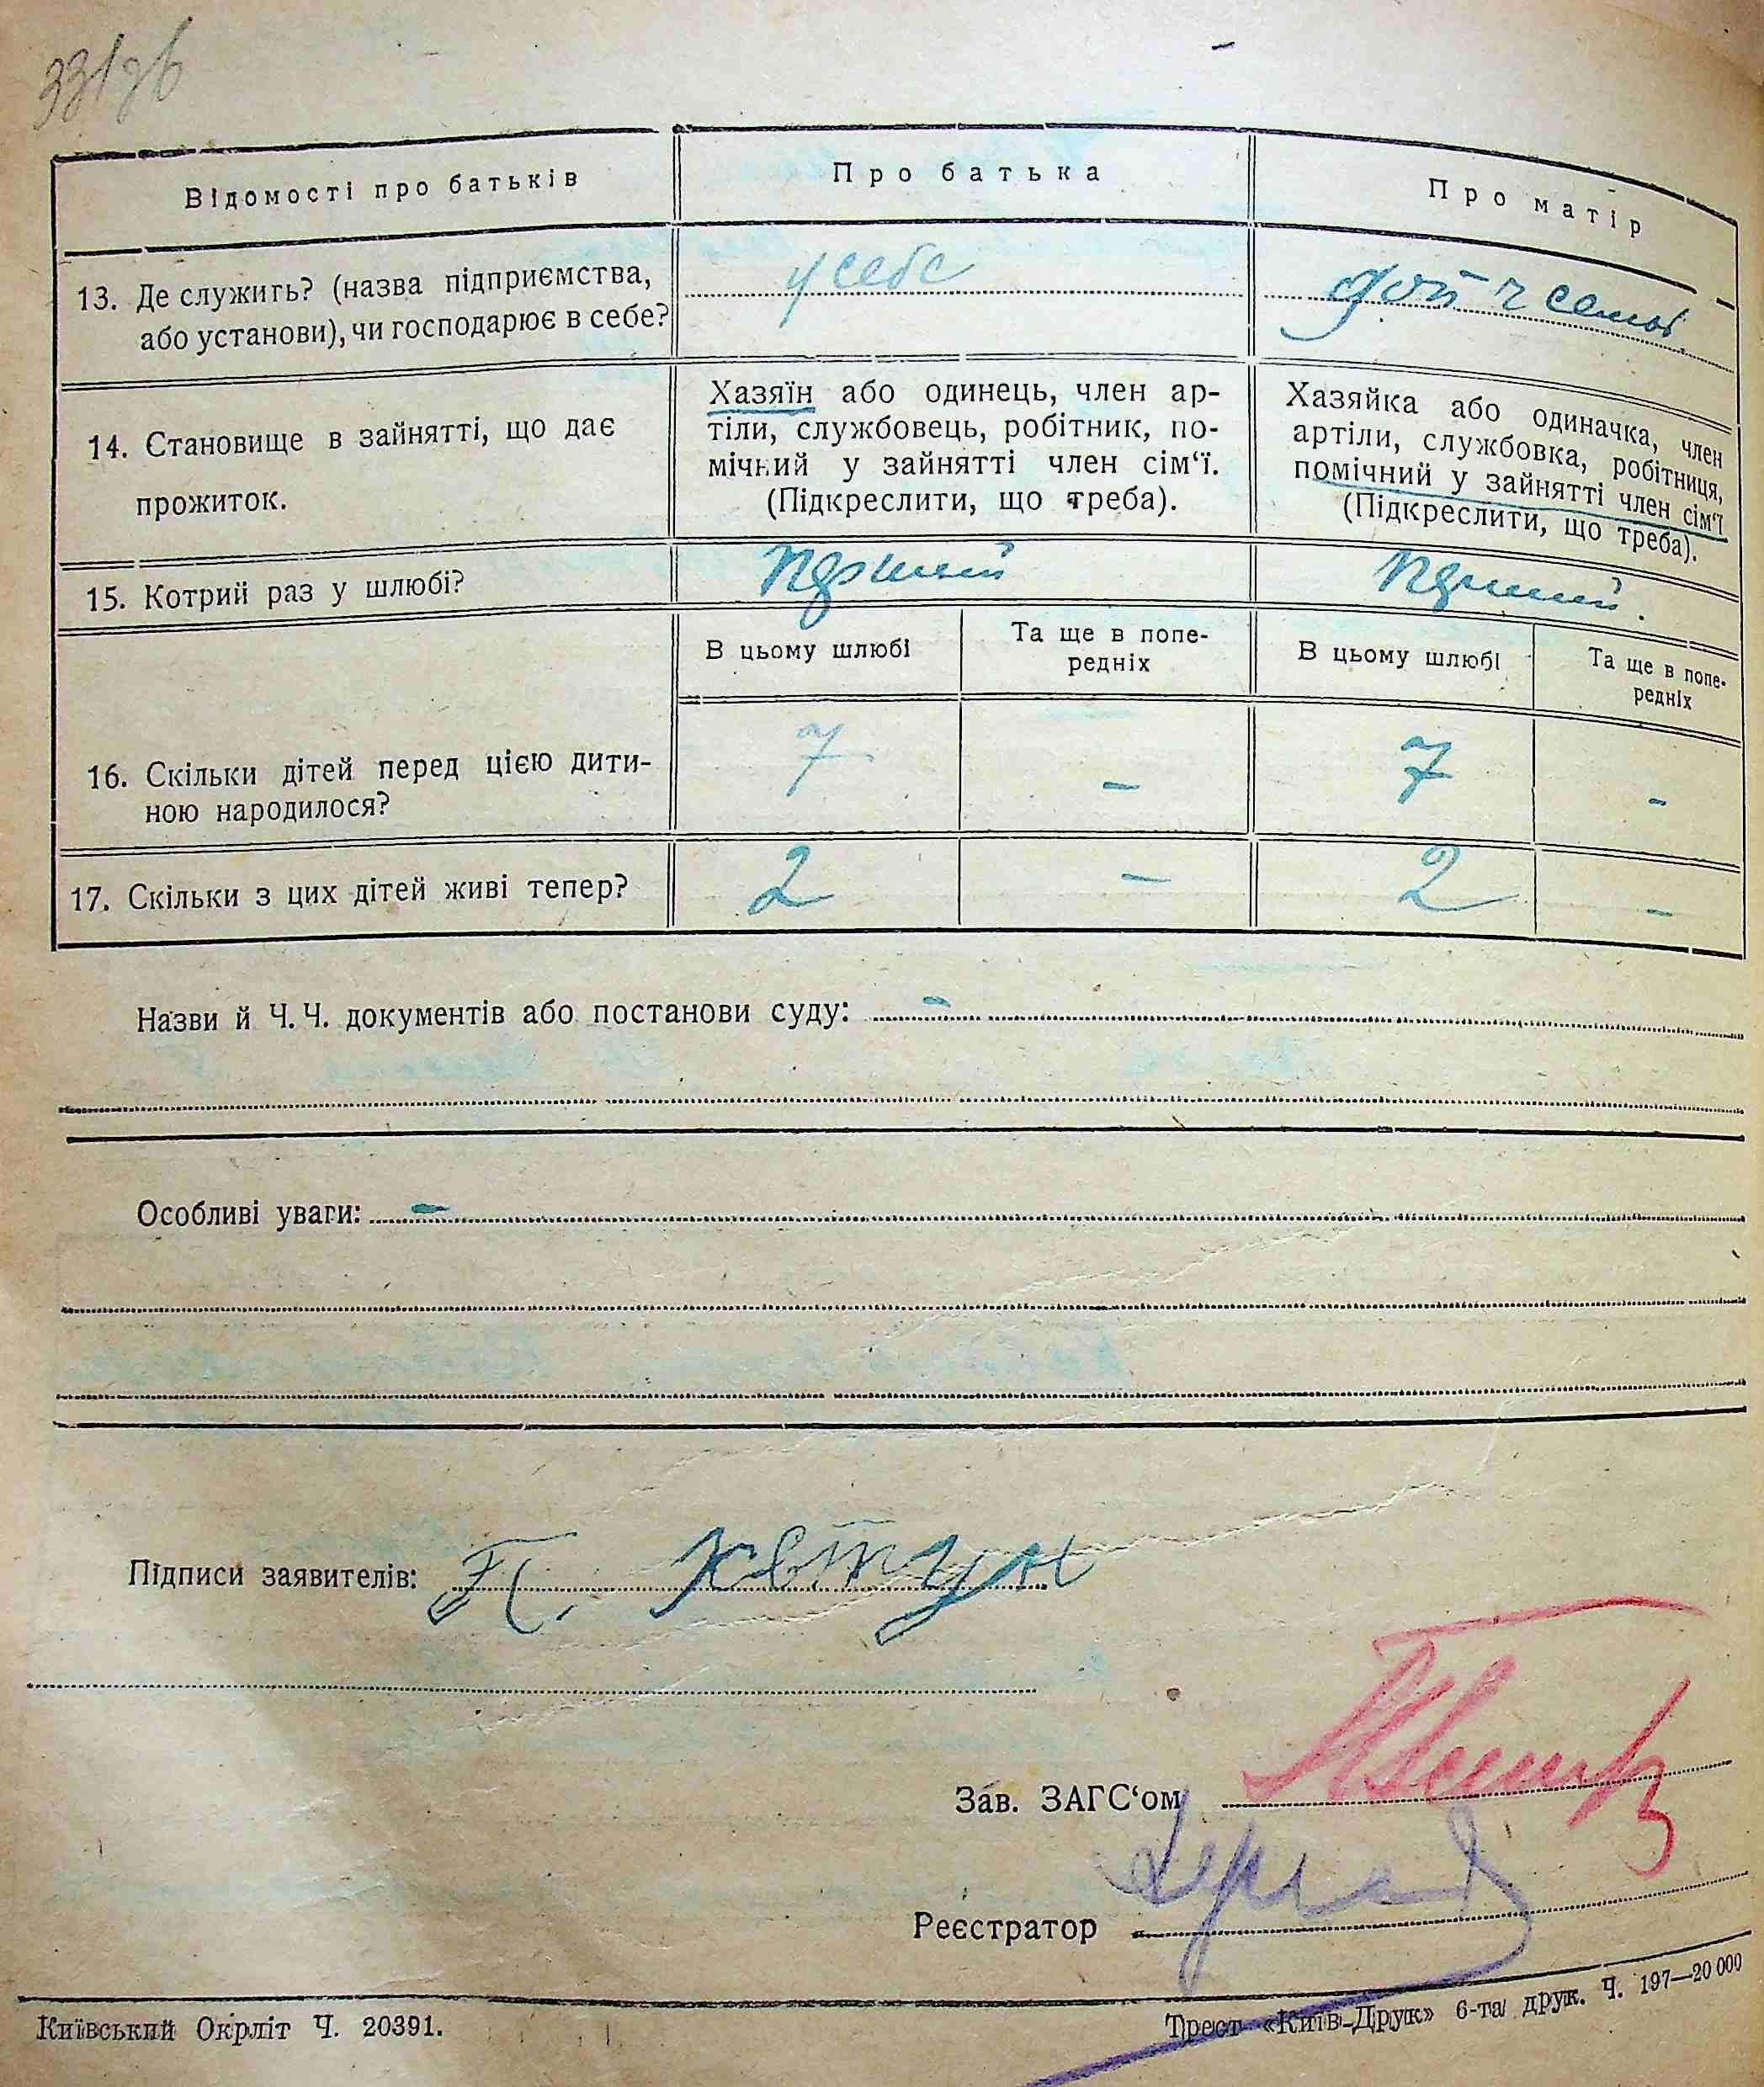 Відомості про батьків
Про батька
Про матір
13. Де служить? (назва підприємства,
або установи), чи господарює в себе?
у себе
14. Становище в зайнятті, що дає
прожиток.
Хазяїн або одинець, член ар-
тіли, службовець, робітник, по-
мічний у зайнятті член сім‘ї.
(Підкреслити, що треба).
Хазяйка або одиначка, член
артіли, службовка, робітниця,
помічний у зайнятті член сім‘ї
(Підкреслити, що треба).
15. Котрий раз у шлюбі?
Перший
Перший.
В цьому шлюбі
Та ще в попе-
редніх
В цьому шлюбі
Та ще в попе-
редніх
16. Скільки дітей перед цією дити-
ною народилося?
7 – 7 –
17. Скільки з цих дітей живі тепер?
2 – 2 –
Назви й Ч. Ч. документів або постанови суду: –
Особливі уваги: –
Підписи заявителів: П. Ковтун
Зав. ЗАГС‘ом
Реєстратор
Київський Окрліт Ч. 20391.
Трест «Київ-Друк» 6-та друк. Ч. 197—20 000